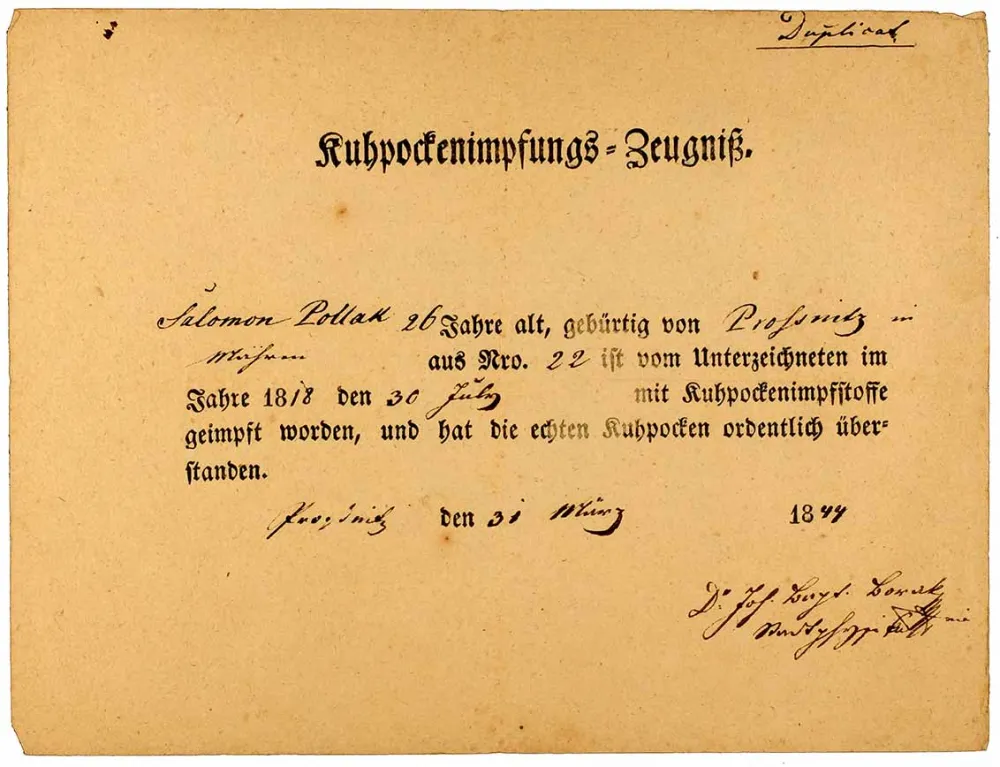 Duplicat
Kuhpockenimpfungs-Zeugniß.
Salomon Pollak 26 Jahre alt, gebürtig von Prossnitz in
Mähren aus Nro. 22 ist vom Unterzeichneten im
Jahre 1818 den 30 July mit Kuhpockenimpfstoffe
geimpft worden, und hat die echten Kuhpocken ordentlich über-
standen.
Prossnitz den 31 März 1844
Dr. Joh. Bapt.